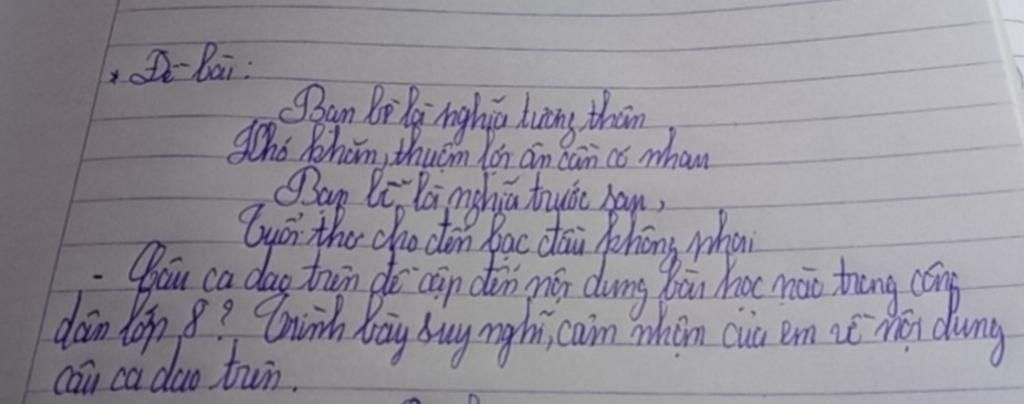 * Đề bài:
Bạn bè là nghĩa tương thân
Khó khăn, thuận lợi ân cần có nhau
Bạn bè là nghĩa trước sau,
Tuổi thơ cho đến bạc đầu không phai
- Câu ca dao trên đề cập đến nội dung bài học nào trong công
dân lớp 8? Trình bày suy nghĩ, cảm nhận của em về nội dung
câu ca dao trên.